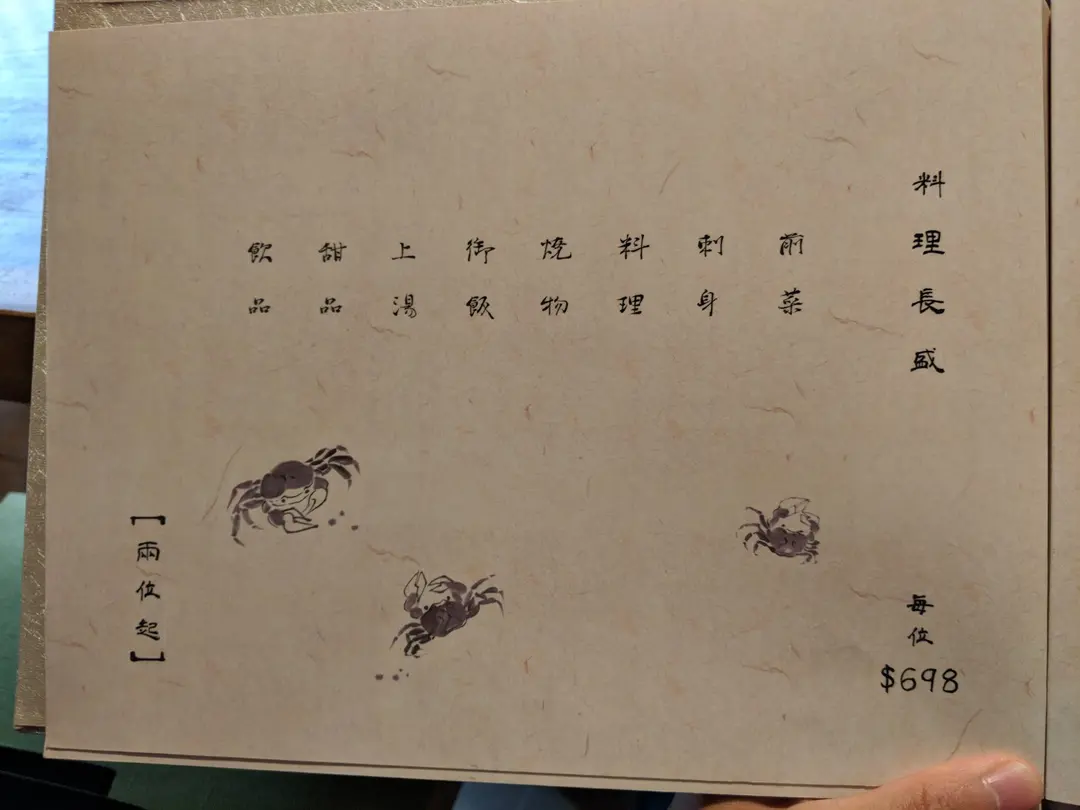 料理長盛
前菜
刺身
料理
燒物
御飯
上湯
甜品
飲品
每位
$698
【兩位起】